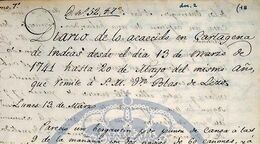 doc. 2
Diario de lo acaecido en Cartagena
de Indias desde el dia 13 de marzo de
1741 hasta 20 de Mayo del mismo año,
que remite a S.M. Dn Blas de Lezo.
Lunes 13 de Marzo
Parecio un bergantin por punta de Canoa a las
9 de la mañana de 60 cañones, ya